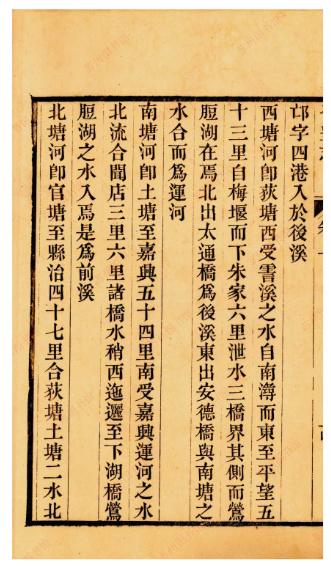 邙字四港入於後溪
西塘河卽荻塘西受霅溪之水自南潯而東至平望五
十三里自梅堰而下朱家六里泄水三橋界其側而鶯
脰湖在焉北出太通橋爲後溪東出安德橋與南塘之
水合而爲運河
南塘河卽土塘至嘉興五十四里南受嘉興運河之水
北流合聞店三里六里諸橋水稍西迤邐至下湖橋鶯
脰湖之水入焉是爲前溪
北塘河卽官塘至縣治四十七里合荻塘土塘二水北